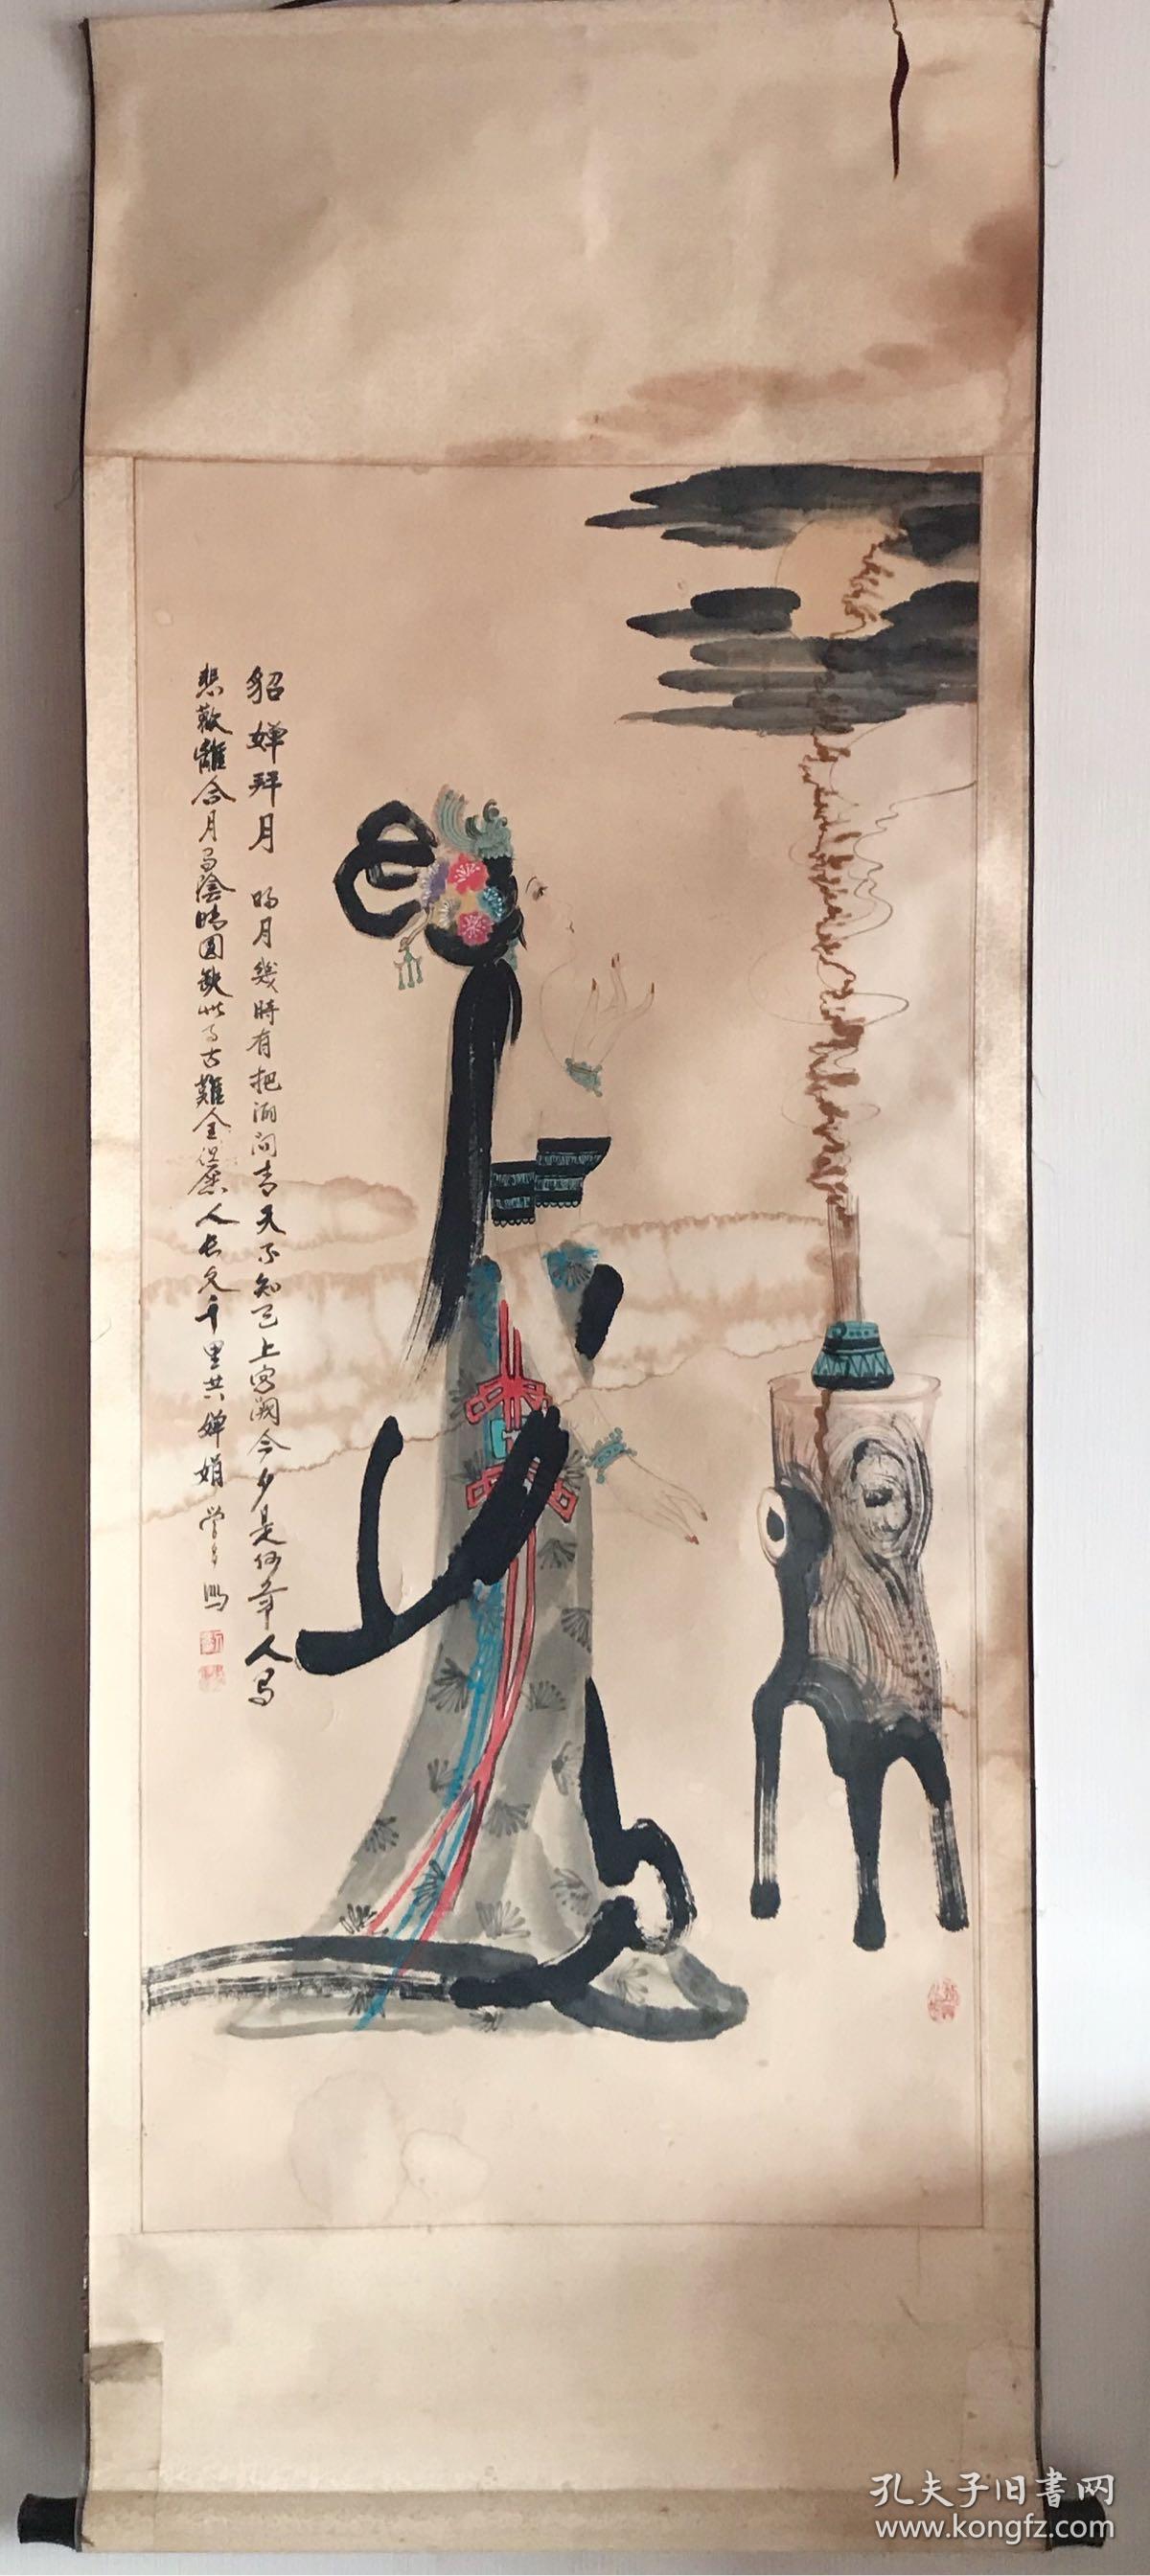 貂蟬拜月 明月幾時有把酒问青天不知天上宫阙今夕是何年人有
悲歡離合月有陰晴圆缺此事古難全但愿人长久千里共嬋娟
孔夫子旧書网
www.kongfz.com